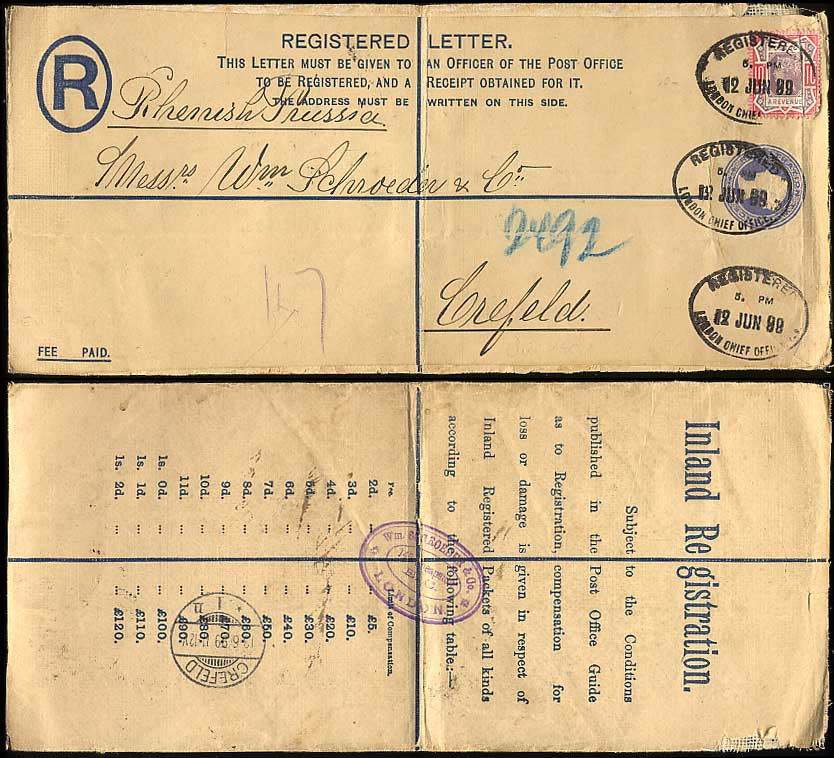 REGISTERED LETTER.
THIS LETTER MUST BE GIVEN TO AN OFFICER OF THE POST OFFICE
TO BE REGISTERED, AND A RECEIPT OBTAINED FOR IT.
THE ADDRESS MUST BE WRITTEN ON THIS SIDE.
R
Rhenish Prussia
Messrs Wm Schroeder & Co
2492
Crefeld.
147
FEE PAID.
REGISTERED
5. PM
12 JUN 99
LONDON CHIEF
& REVENUE
REGISTERED
5. PM
12 JUN 99
LONDON CHIEF OFFICE
REGISTERED
5. PM
12 JUN 99
LONDON CHIEF OFFICE
Inland Registration.
Subject to the Conditions
published in the Post Office Guide
as to Registration, compensation for
loss or damage is given in respect of
Inland Registered Packets of all kinds
according to the following table:—
Fee. Limit of Compensation.
2d. ... ... £5.
3d. ... ... £10.
4d. ... ... £20.
5d. ... ... £30.
6d. ... ... £40.
7d. ... ... £50.
8d. ... ... £60.
9d. ... ... £70.
10d. ... ... £80.
11d. ... ... £90.
1s. 0d. ... ... £100.
1s. 1d. ... ... £110.
1s. 2d. ... ... £120.
Wm. SCHROEDER & Co.
LONDON
CREFELD